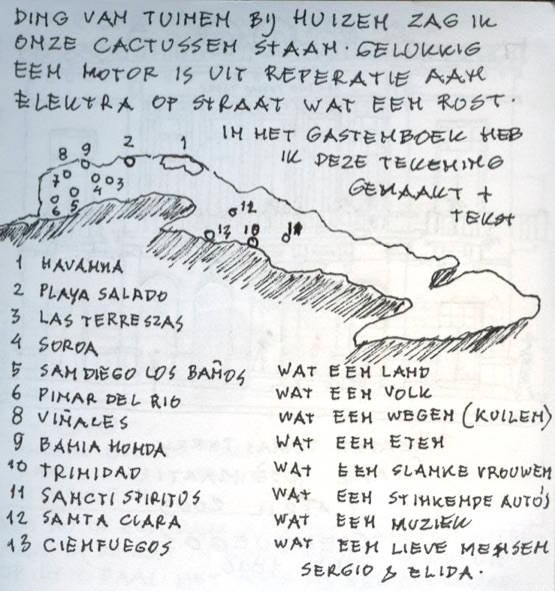 DING VAN TUINEN BIJ HUIZEN ZAG IK
ONZE CACTUSSEN STAAN. GELUKKIG
EEN MOTOR IS UIT REPERATIE AAN
ELEKTRA OP STRAAT WAT EEN ROST.
IN HET GASTENBOEK HEB
IK DEZE TEKENING
GEMAAKT +
TEKST
8 9 2 1
7 4 3
6 5
12
12 10 11
1 HAVANNA
2 PLAYA SALADO
3 LAS TERRESZAS
4 SOROA
5 SAN DIEGO LOS BAÑOS WAT EEN LAND
6 PINAR DEL RIO WAT EEN VOLK
8 VIÑALES WAT EEN WEGEN (KUILEN)
9 BAHIA HONDA WAT EEN ETEN
10 TRINIDAD WAT EEN SLANKE VROUWEN
11 SANCTI SPIRITUS WAT EEN STINKENDE AUTO'S
12 SANTA CLARA WAT EEN MUZIEK
13 CIENFUEGOS WAT EEN LIEVE MENSEN
SERGIO & ELIDA.